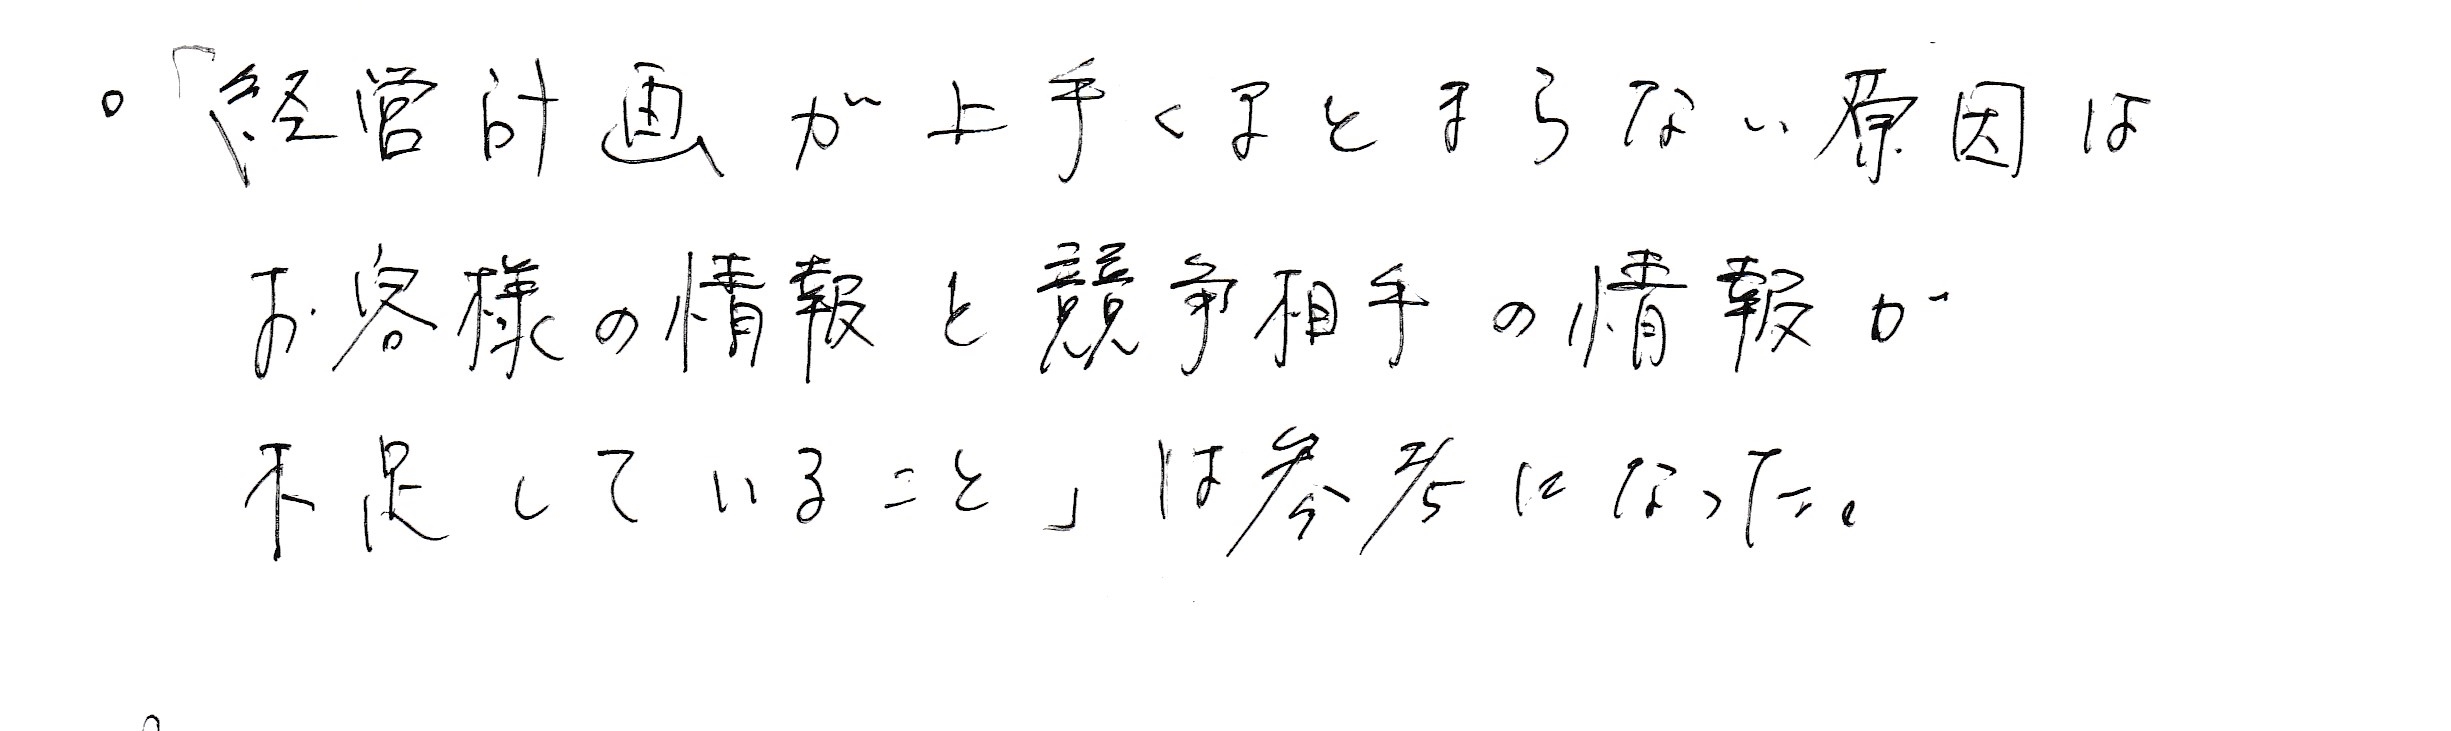 。「経営計画が上手くまとまらない原因は
お客様の情報と競争相手の情報が
不足していること」は参考になった。